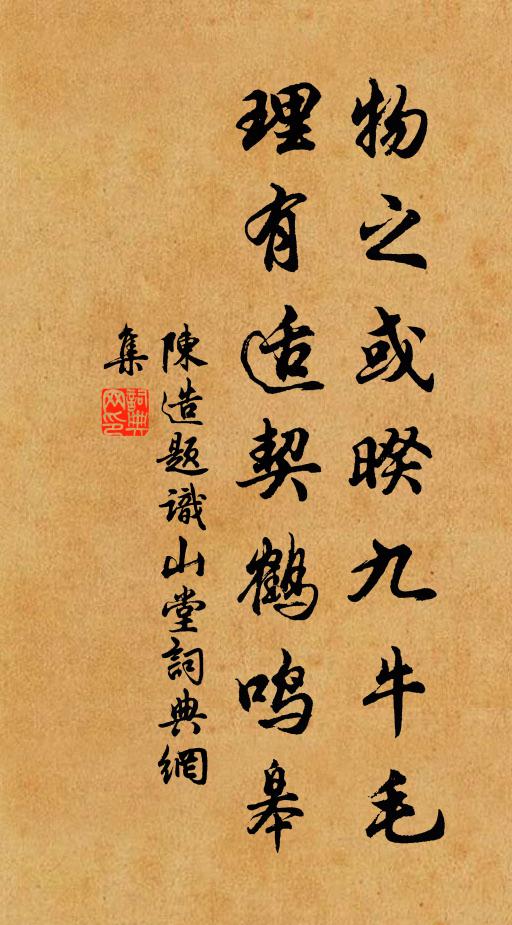 物之或暌九牛毛
理有适契鹤鸣皋
陳造题識山堂詞典網
集
詞典
网印